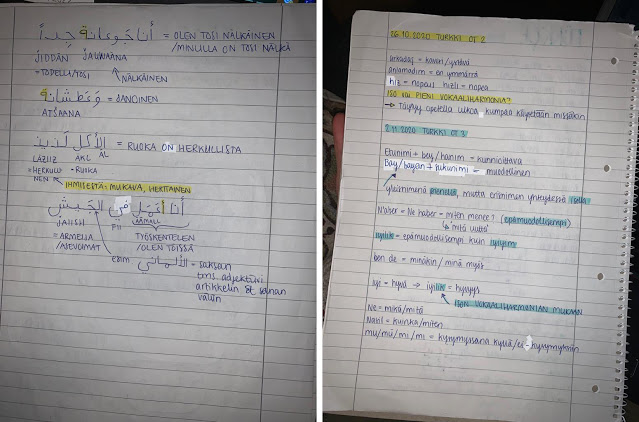 أنا جَوعانة جِداً = OLEN TOSI NÄLKÄINEN
/MINULLA ON TOSI NÄLKÄ
JIDDAN JAUWAANA
= TODELLA/TOSI NÄLKÄINEN
وَعَطشانة = JANOINEN
ATSAANA
الأَكل لَذيذ = RUOKA ON HERKULLISTA
LAZIIZ AKL AL
= HERKULLI = RUOKA
NEN
IHMISESTÄ: MUKAVA, HERTTAINEN
أَنا أَعْمَل في الجَيش
JAIISH FII
= ARMEIJA TYÖSKENTELEN
/ASEVOIMAT /OLEN TÖISSÄ
الألماني = saksan
tms. adjektiivi
artikkelin & sanan
väliin
26.10.2020 TURKKI OT 2
arkadaş = kaveri/ystävä
anlamadım = en ymmärrä
hız = nopeus hızlı = nopea
ISO vai PIENI VOKAALIHARMONIA?
→ Täytyy opetella ulkoa, kumpaa käytetään missäkin
2.11.2020 TURKKI OT 3
Etunimi + bey/hanım = kunnioittava
Bay/bayan + sukunimi = muodollinen
yleisnimenä pienellä, mutta erisnimen yhteydessä isolla
N'aber = Ne haber = miten menee? (epämuodollisempi)
↳ mitä uutta
iyilik = epämuodollisempi kuin iyiyim
ben de = minäkin/minä myös
iyi = hyvä → iyilik = hyvyys
ISON VOKAALIHARMONIAN MUKAAN
Ne = mikä/mitä
Nasıl = kuinka/miten
mu/mü/mi/mı = kysymyssana kyllä/ei-kysymyksiin